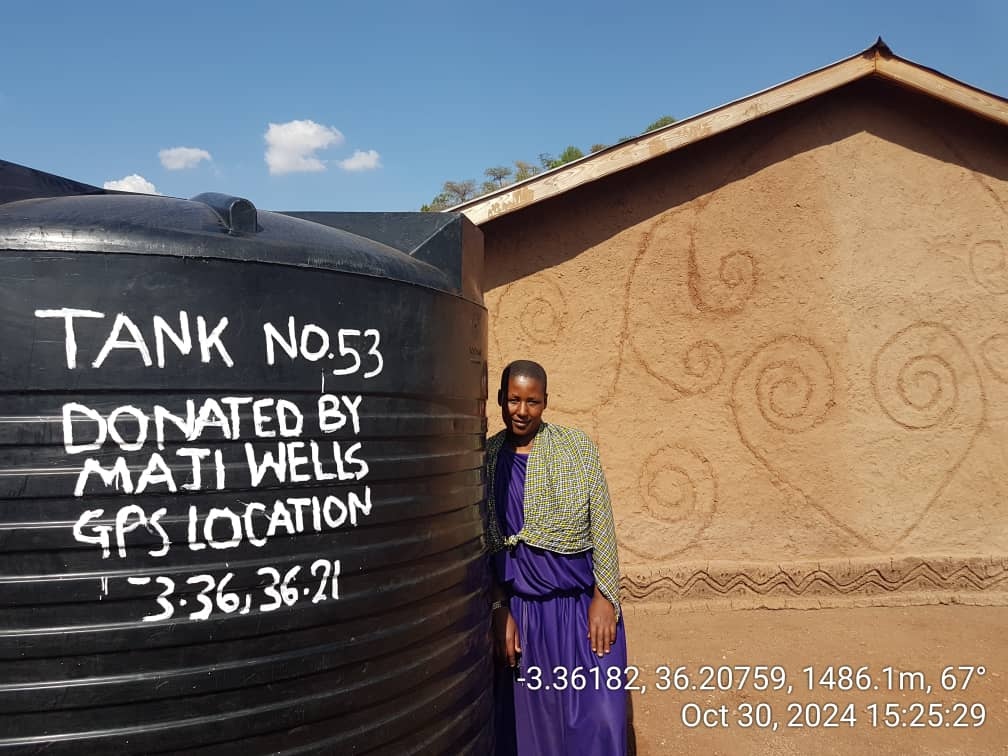 TANK NO.53
DONATED BY
MAJI WELLS
GPS LOCATION
-3.36, 36.21
-3.36182, 36.20759, 1486.1m, 67°
Oct 30, 2024 15:25:29